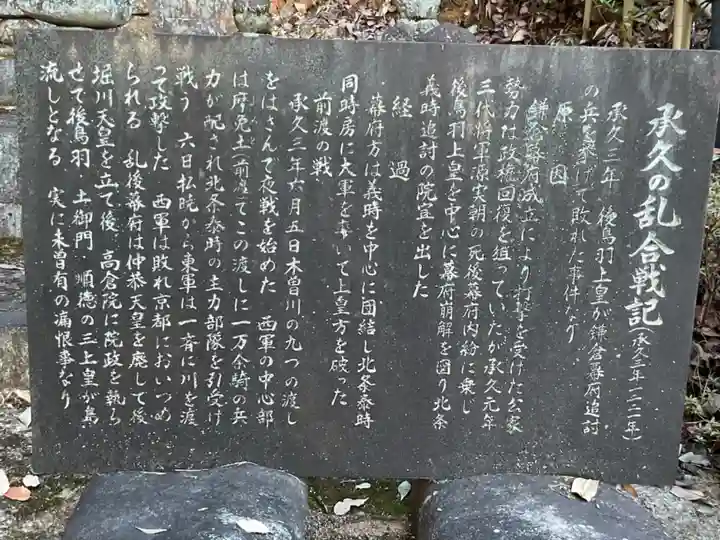 承久の乱合戦記(承久三年一二二一年)
承久三年 後鳥羽上皇が鎌倉幕府追討
の兵を挙げて敗れた事件なり
原因
鎌倉幕府成立により打撃を受けた公家
勢力は政権回復を狙っていたが承久元年
三代将軍源実朝の死後幕府内紛に乗じ
後鳥羽上皇を中心に幕府崩解を図り北条
義時追討の院宣を出した
経過
幕府方は義時を中心に団結し北条泰時
同時房に大軍を率いて上皇方を破った
前渡の戦
承久三年六月五日木曽川の九つの渡し
をはさんで夜戦を始めた 西軍の中心部
は摩免土(前渡)でこの渡しに一万余騎の兵
力が配され北条泰時の主力部隊を引受け
戦う 六日払暁から東軍は一斉に川を渡
って攻撃した 西軍は敗れ京都においつめ
られる 乱後幕府は仲恭天皇を廃して後
堀川天皇を立て後 高倉院に院政を執ら
せて後鳥羽 土御門 順徳の三上皇が島
流しとなる 実に未曽有の痛恨事なり